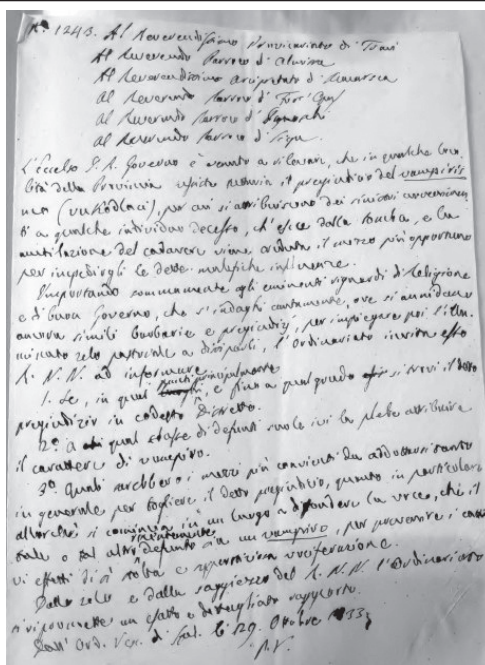 N.° 1243. Al Reverendissimo Provicariato di Traù
Al Reverendo Parroco d'Almissa
Al Reverendissimo Arcipretato d'
Al Reverendo Parroco d'
Al Reverendo Parroco d'
Al Reverendo Parroco d'
L'Eccelso I. R. Governo è venuto a rilevare, che in qualche loca
lità della Provincia esista tuttavia il pregiudizio del vampiris
mo (vukodlaci), per cui si attribuiscono dei sinistri
ti a qualche individuo decesso, ch'esce dalla tomba, e la
mutilazione del cadavere viene creduta il mezzo più opportuno
per impedirgli le dette malefiche influenze.
Importando sommamente agli eminenti riguardi di Religione
e di buon Governo, che s'indaghi cautamente, ove si annidano
ancora simili barbarie e pregiudizj, per impiegare poi l'illu
minato zelo pastorale a dissiparli, l'Ordinariato invita esso
R. N. N. ad informare
1. Se, in quali principalmente, e fino a qual grado si trovi il detto
pregiudizio in codesto Distretto.
2.° a qual classe di defunti suole ivi la plebe attribuire
il carattere di vampiro.
3.° Quali sarebbero i mezzi più convenienti da adottarsi tanto
in generale per togliere il detto pregiudizio, quanto in particolare
allorchè si comincia in un luogo a diffondere la voce, che il
tale o tal altro defunto sia un vampiro, per prevenire i
vi effetti di sì stolta e vociferazione.
Dallo zelo e dalla saggiezza del R. N. N. l'Ordinariato
si ripromette un esatto e dettagliato rapporto.
Dall'Ord. Ves. di Spal. li 29. Ottobre 833.
P. V.